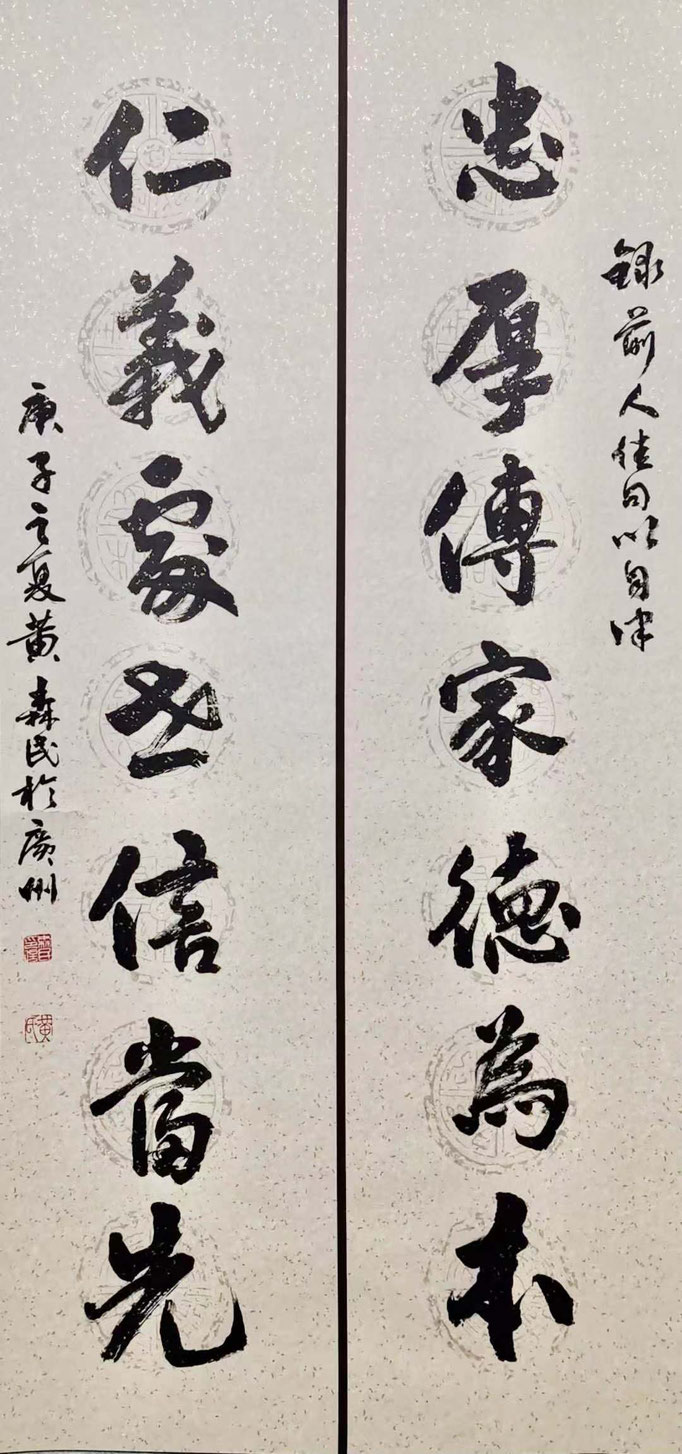 錄前人佳句以自律
忠厚傳家德為本
仁義處世信當先
庚子之夏黃森民於廣州